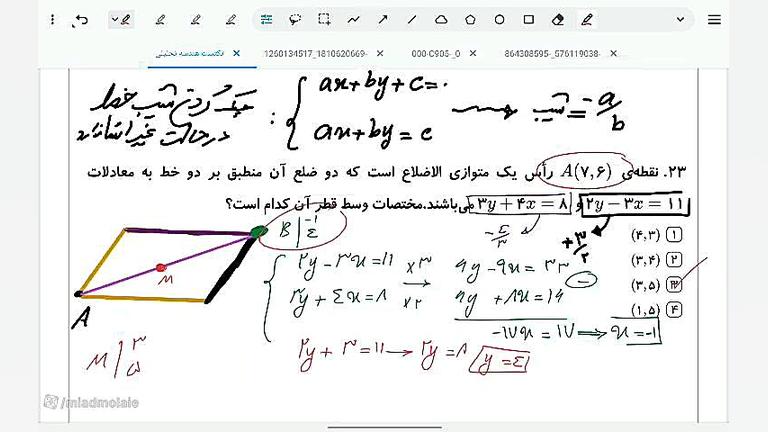 انگلیست هندسه تحلیلی
1260134517_1810620669-
000-C905-_0
864308595-_576119038-
ax+by+c=۰
پیدا کردن شیب خط
در حالت غیر استاندارد : شیب = -a/b
ax+by=c
۲۳. نقطه‌ی A(۷,۶) رأس یک متوازی الاضلاع است که دو ضلع آن منطبق بر دو خط به معادلات
۲y−۳x=۱۱ و ۳y+۴x=۸ می‌باشند. مختصات وسط قطر آن کدام است؟
۱ (۴,۳)
۲ (۳,۴)
۳ (۳,۵)
۴ (۱,۵)
-۴/۳
+۳/۲
B | -۱ ۴
۲y-۳x=۱۱ ×۳ ۶y-۹x=۳۳
۳y+۴x=۸ ×۲ ۶y+۸x=۱۶
-۱۷x=۱۷ ⟹ x=-۱
۲y+۳=۱۱ → ۲y=۸ y=۴
M
A
M | ۳ ۵
/miadmolaie